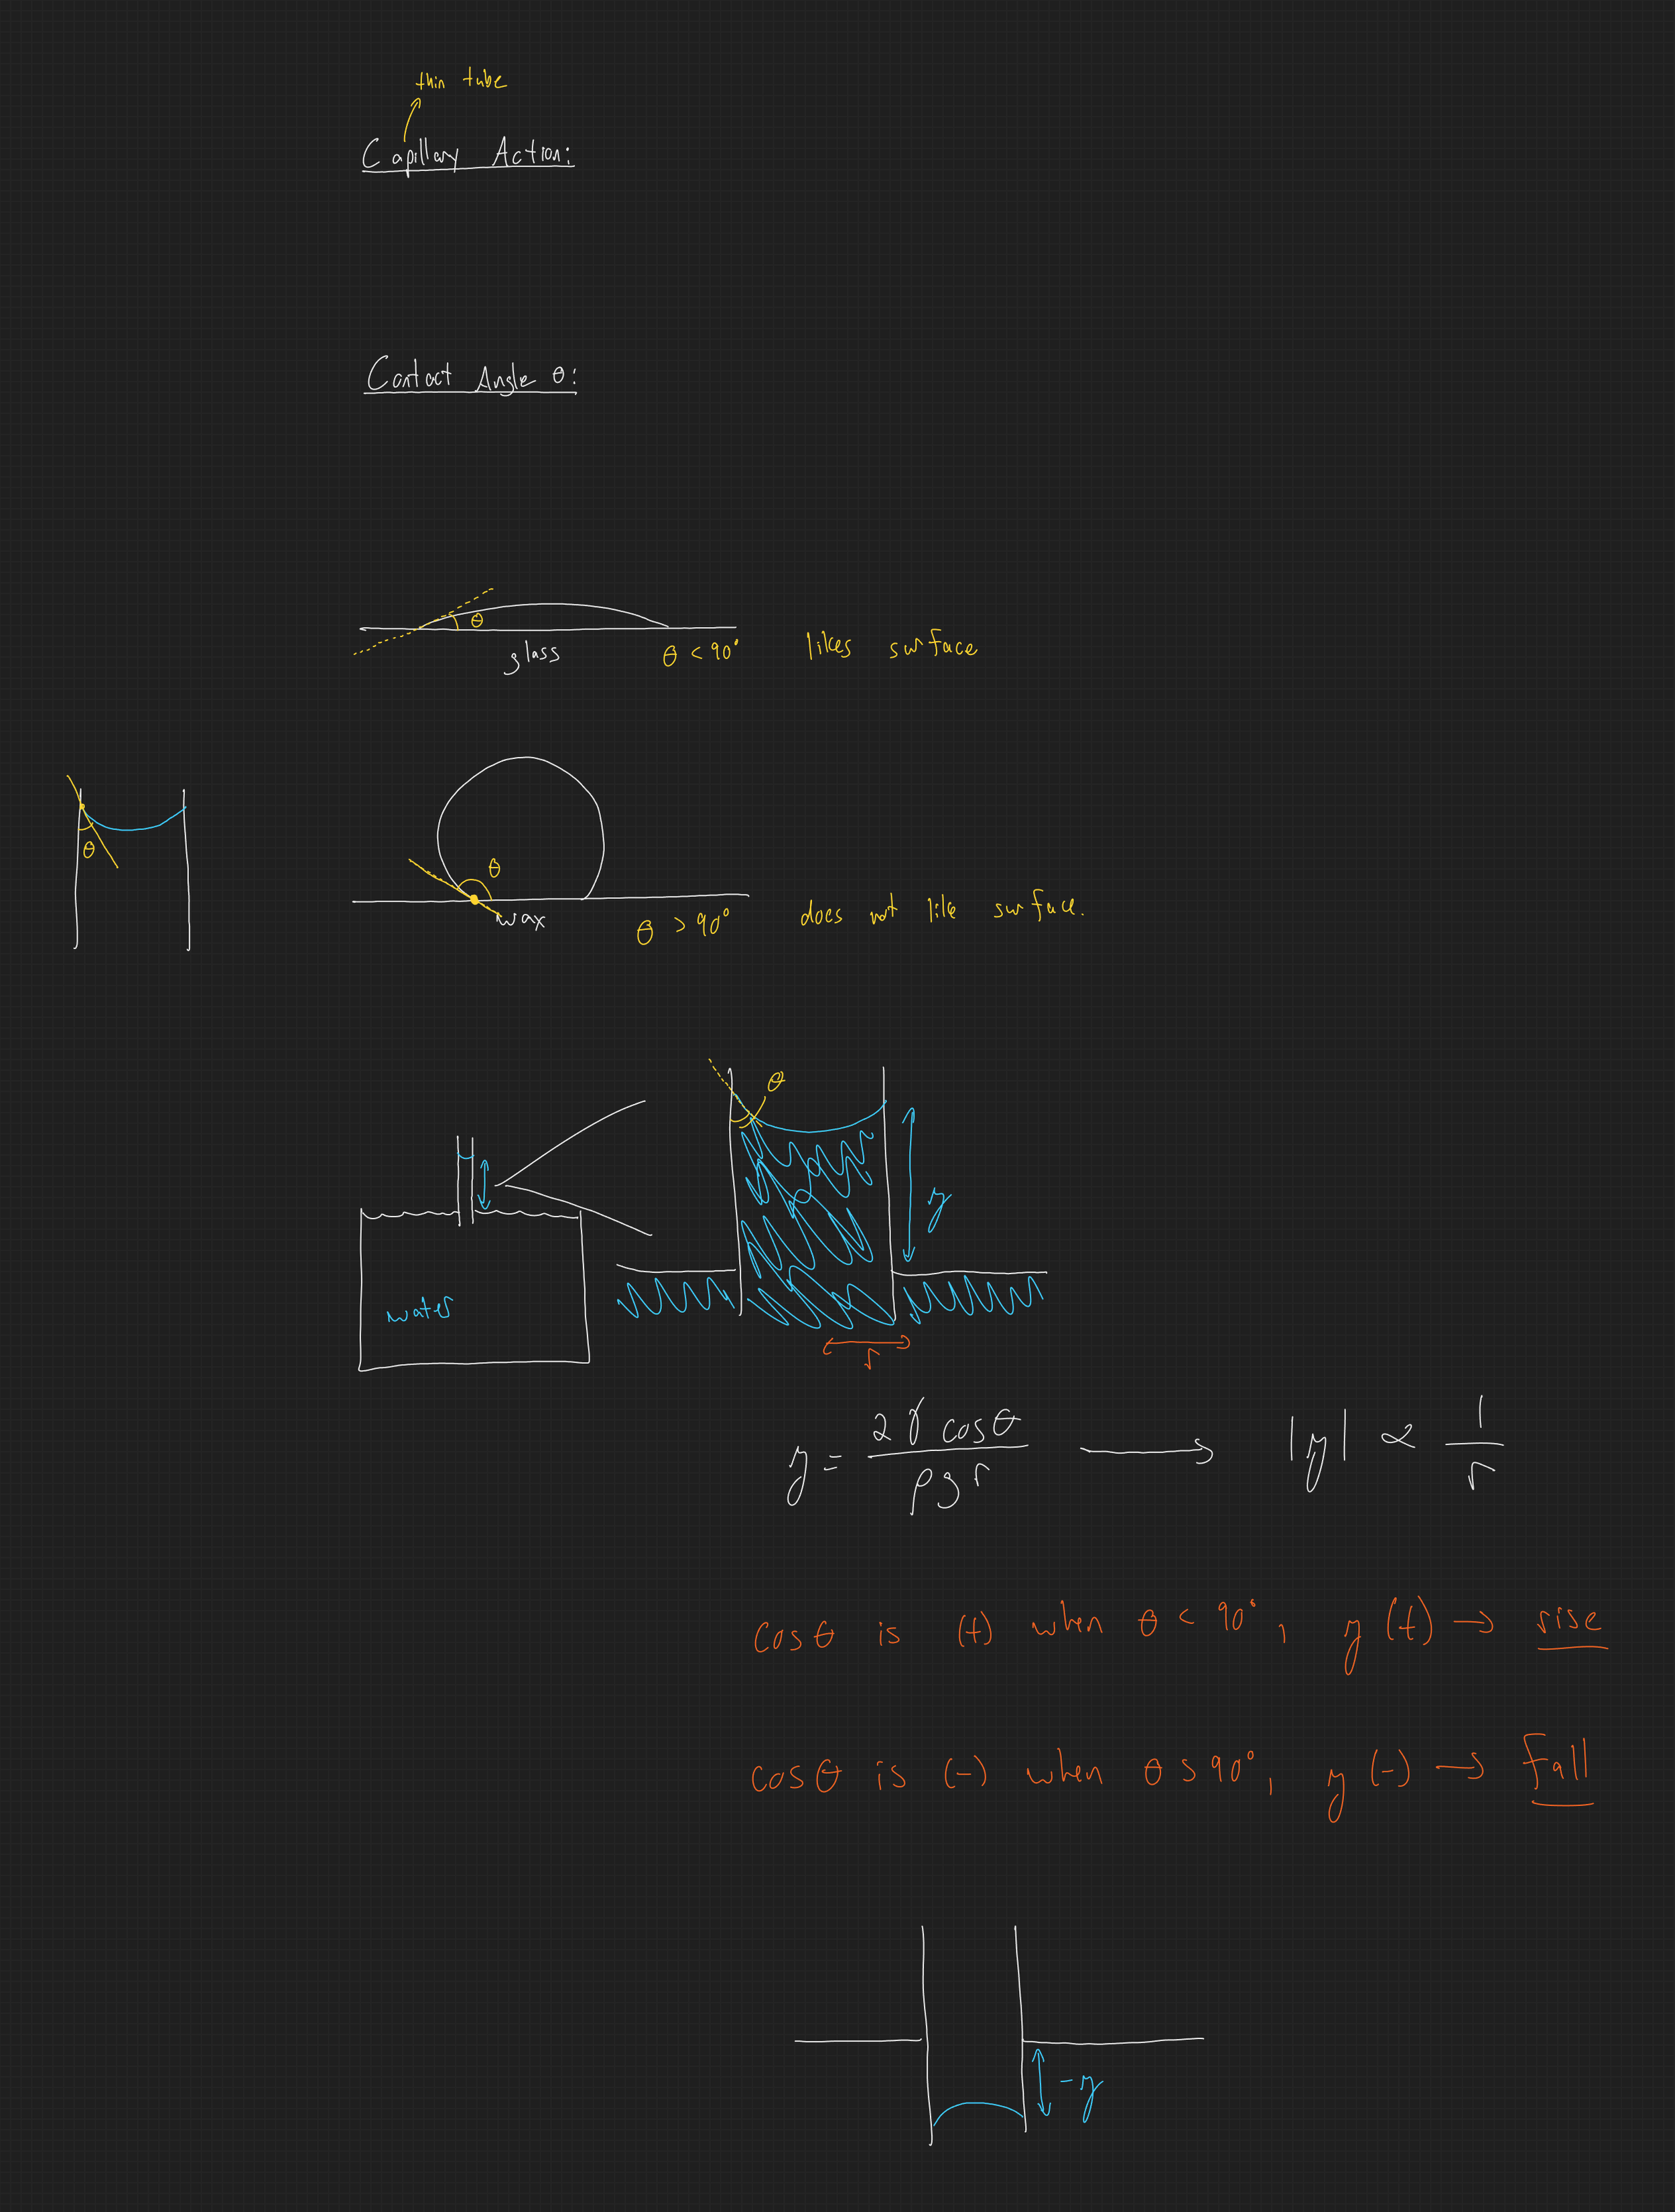 thin tube
Capillary Action:
Contact Angle θ:
θ
glass
θ < 90° likes surface
θ
θ
wax
θ > 90° does not like surface.
θ
y
water
r
y = 2γ cosθ / ρgr → |y| ∝ 1/r
cosθ is (+) when θ < 90°, y (+) → rise
cosθ is (-) when θ > 90°, y (-) → fall
-y